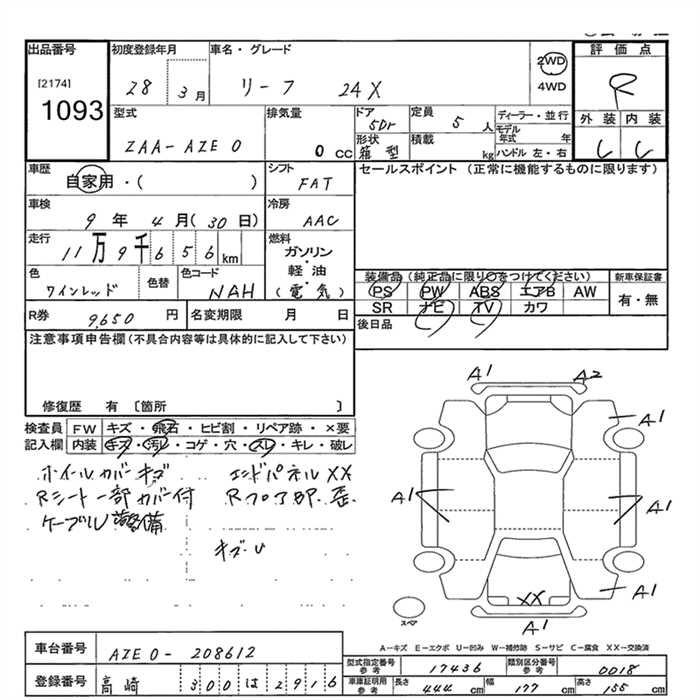 出品番号
[2174]
1093
初度登録年月
28 3月
車名・グレード
リーフ 24X
2WD
4WD
評価点
R
外装 内装
C C
型式
ZAA-AZE0
排気量
0 cc
ドア
5Dr
形状
箱型
定員
5人
積載
kg
ディーラー・並行
モデル年式 年
ハンドル 左・右
車歴
自家用・( )
シフト
FAT
セールスポイント (正常に機能するものに限ります)
車検
9年 4月 (30日)
冷房
AAC
走行
11万9千656km
燃料
ガソリン
・
軽油
(電気)
色
ワインレッド
色替
色コード
NAH
装備品 (純正品に限り○をつけてください)
PS PW ABS エアB AW
SR ナビ TV カワ
新車保証書
有・無
R券
9,650円
名変期限 月 日
後日品
注意事項申告欄(不具合内容等は具体的に記入して下さい)
修復歴 有 〔箇所 〕
検査員記入欄
FW キズ・飛石・ヒビ割・リペア跡・×要
内装 キズ・汚レ・コゲ・穴・スレ・キレ・破レ
ホイールカバーキズ
Rシート一部カバー付
ケーブル 装備
エンドパネルXX
Rフロア部 歪
キズU
A1 A2
A1
A1 A1
A1
XX
A1
スペア
A-キズ E-エクボ U-凹み W-補修跡 S-サビ C-腐食 XX-交換済
車台番号
AZE0-208612
登録番号
高崎 300は2916
型式指定番号 参考
17436
類別区分番号 参考
0018
車庫証明用 参考
長さ 444cm
幅 177cm
高さ 155cm